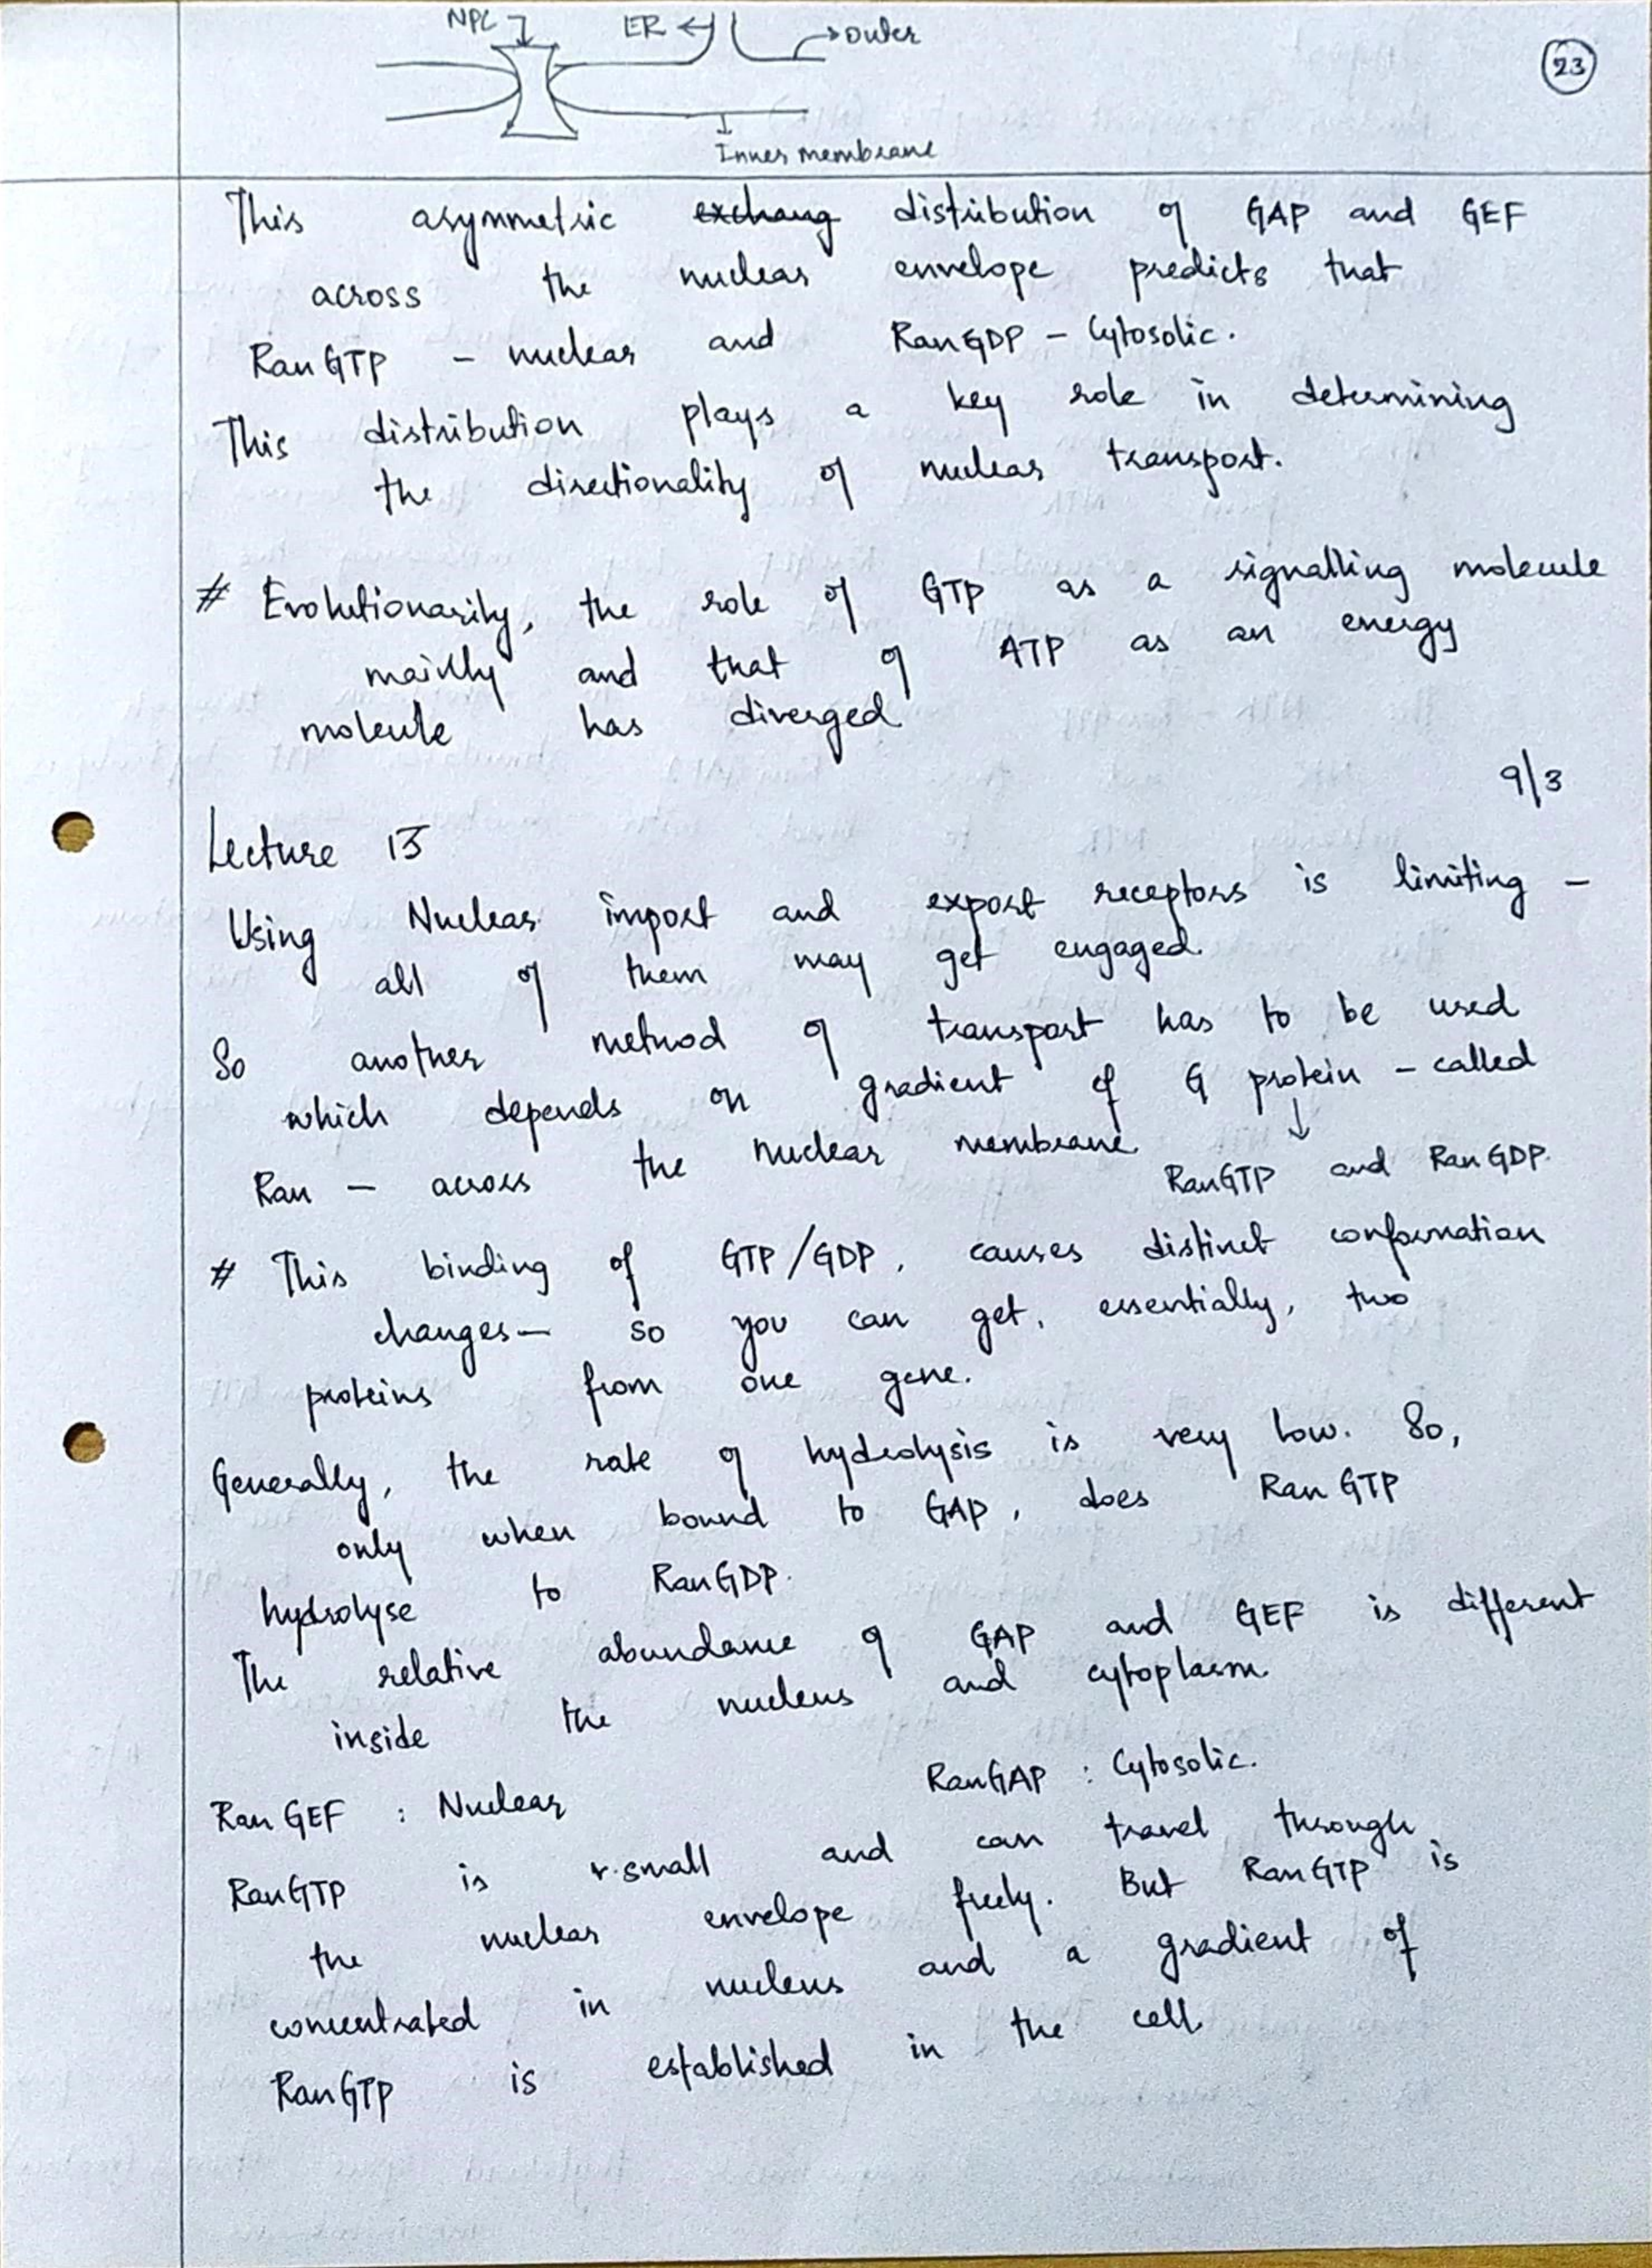 NPC ER outer
23
Inner membrane
This asymmetric exchang distribution of GAP and GEF
across the nuclear envelope predicts that
RanGTP - nuclear and RanGDP - Cytosolic.
This distribution plays a key role in determining
the directionality of nuclear transport.
# Evolutionarily, the role of GTP as a signalling molecule
mainly and that of ATP as an energy
molecule has diverged
9/3
Lecture 15
Using Nuclear import and export receptors is limiting -
all of them may get engaged.
So another method of transport has to be used
which depends on gradient of G protein - called
Ran - across the nuclear membrane. RanGTP and RanGDP.
# This binding of GTP/GDP, causes distinct conformation
changes - so you can get, essentially, two
proteins from one gene.
Generally, the rate of hydrolysis is very low. So,
only when bound to GAP, does RanGTP
hydrolyse to RanGDP.
The relative abundance of GAP and GEF is different
inside the nucleus and cytoplasm.
RanGEF : Nuclear RanGAP : Cytosolic.
RanGTP is v.small and can travel through
the nuclear envelope freely. But RanGTP is
concentrated in nucleus and a gradient of
RanGTP is established in the cell.